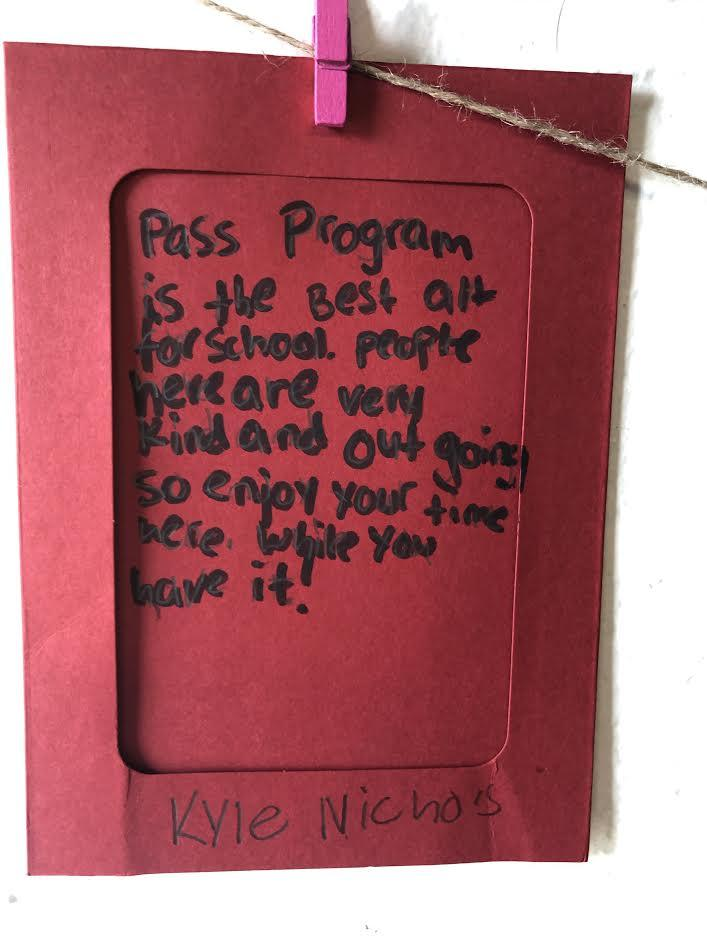 Pass Program
is the Best alt
for school. people
here are very
kind and out going
so enjoy your time
here. While you
have it!
Kyle Nicho's